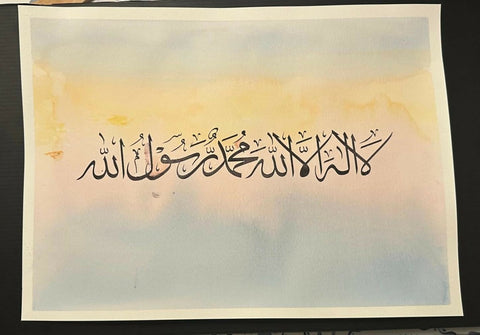 لَا إِلٰهَ إِلَّا اللّٰه مُحَمَّد رَّسُولُ اللّٰه